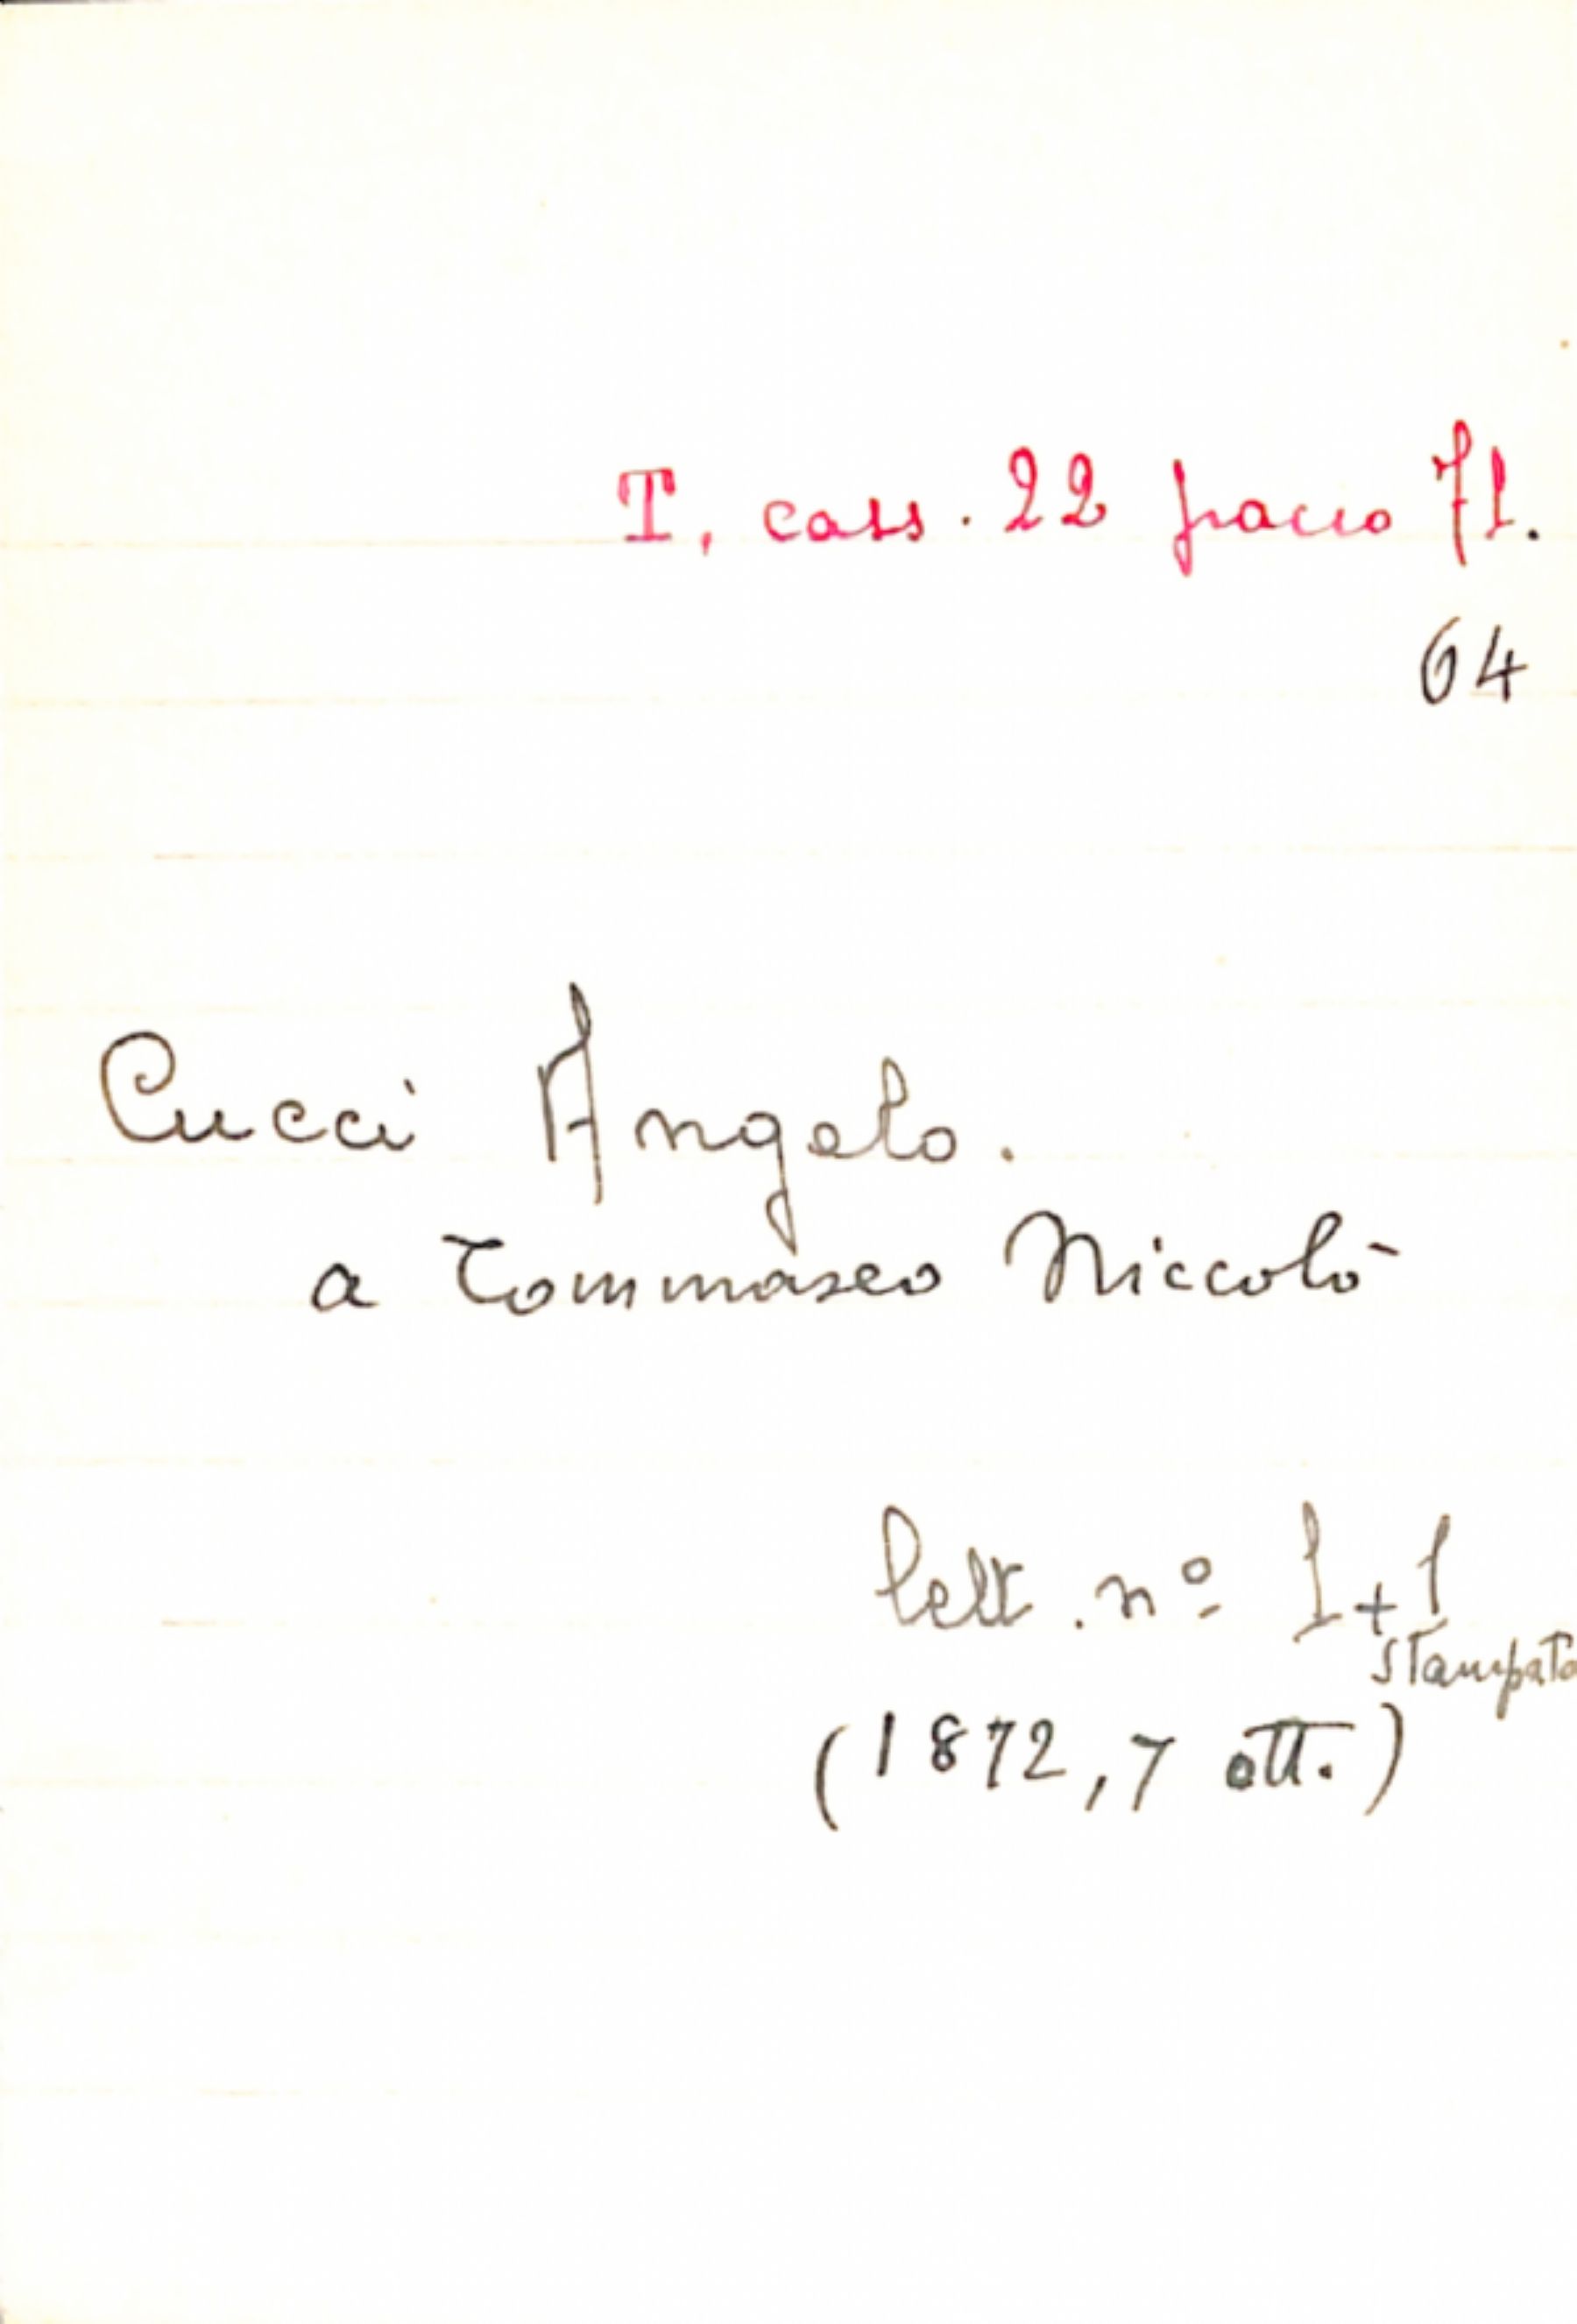 T, cass. 22 pacco 71.
64
Cucci Angelo.
a Tommaseo Niccolò
lett. nº 1+1
stampato
(1872, 7 ott.)